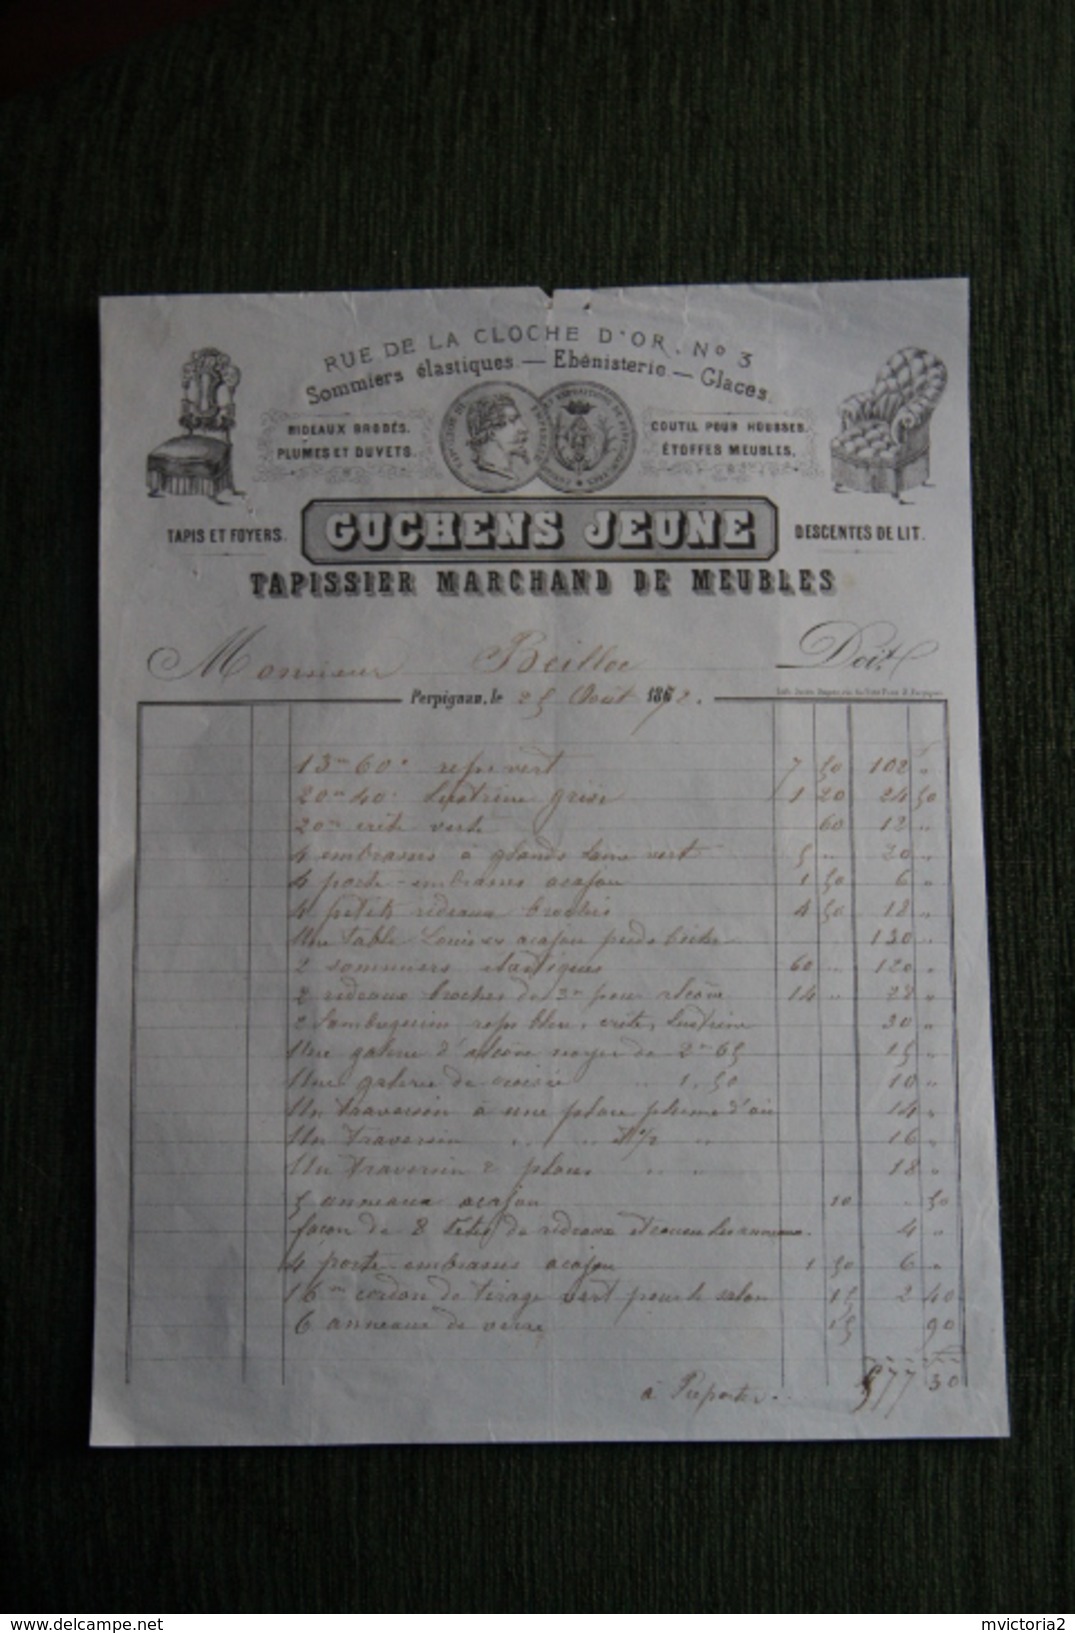 RUE DE LA CLOCHE D'OR. Nº 3
Sommiers élastiques — Ebénisterie — Glaces.
RIDEAUX BRODÉS.
PLUMES ET DUVETS.
COUTIL POUR HOUSSES.
ÉTOFFES MEUBLES.
TAPIS ET FOYERS.
GUCHENS JEUNE
DESCENTES DE LIT.
TAPISSIER MARCHAND DE MEUBLES
Monsieur Beilloc Doit
Perpignan, le 25 Août 1872.
13m 60c reps vert 7 50 102 "
20m 40c Lustrine grise 1 20 24 50
20m crête verte 60 12 "
4 embrasses à glands laine vert 5 " 20 "
4 porte-embrasses acajou 1 50 6 "
4 petits rideaux brochés 4 50 18 "
Une Table Louis XV acajou pieds biche 130 "
2 sommiers élastiques 60 " 120 "
2 rideaux brochés de 3m pour alcôve 14 " 28 "
2 Lambrequins reps bleu, crête, Lustrine 30 "
Une galerie d'alcôve noyer de 2m 65 15 "
Une galerie de croisée " 1,50 10 "
Un traversin à une place plume d'oie 14 "
Un traversin " " 1/2 " 16 "
Un traversin 2 places " " 18 "
5 anneaux acajou 10 " 50
façon de 8 têtes de rideaux et les anneaux. 4 "
4 porte-embrasses acajou 1 50 6 "
16m cordon de tirage vert pour le salon 15 2 40
6 anneaux de verre 15 90
à Reporter.. 577 30
delcampe.net
mvictoria2